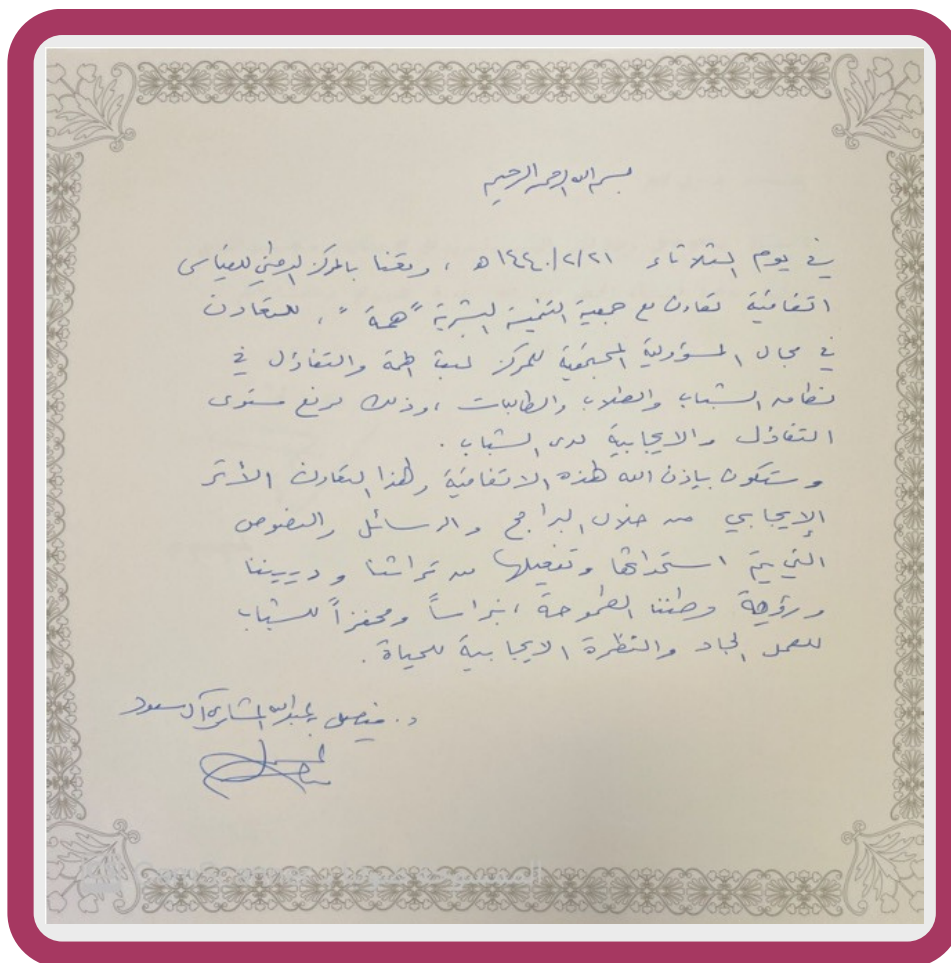 بسم الله الرحمن الرحيم
في يوم الثلاثاء ١٤٤٠/٢/٢١ هـ ، وقعنا بالمركز الوطني للقياس
اتفاقية تعاون مع جمعية التنمية البشرية "همة" ، للتعاون
في مجال المسؤولية المجتمعية للمركز لبعث الهمة والتفاؤل في
الشباب والطلاب والطالبات ، وذلك لرفع مستوى
التفاؤل والايجابية لدى الشباب .
وستكون بإذن الله لهذه الاتفاقية ولهذا التعاون الأثر
الإيجابي من خلال البرامج والرسائل والنصوص
التي يتم وتفعيلها من تراثنا وديننا
ورؤية وطننا الطموحة ، نبراساً ومحفزاً للشباب
للعمل الجاد والنظرة الايجابية للحياة .
د. فيصل بن عبدالله المشاري آل سعود